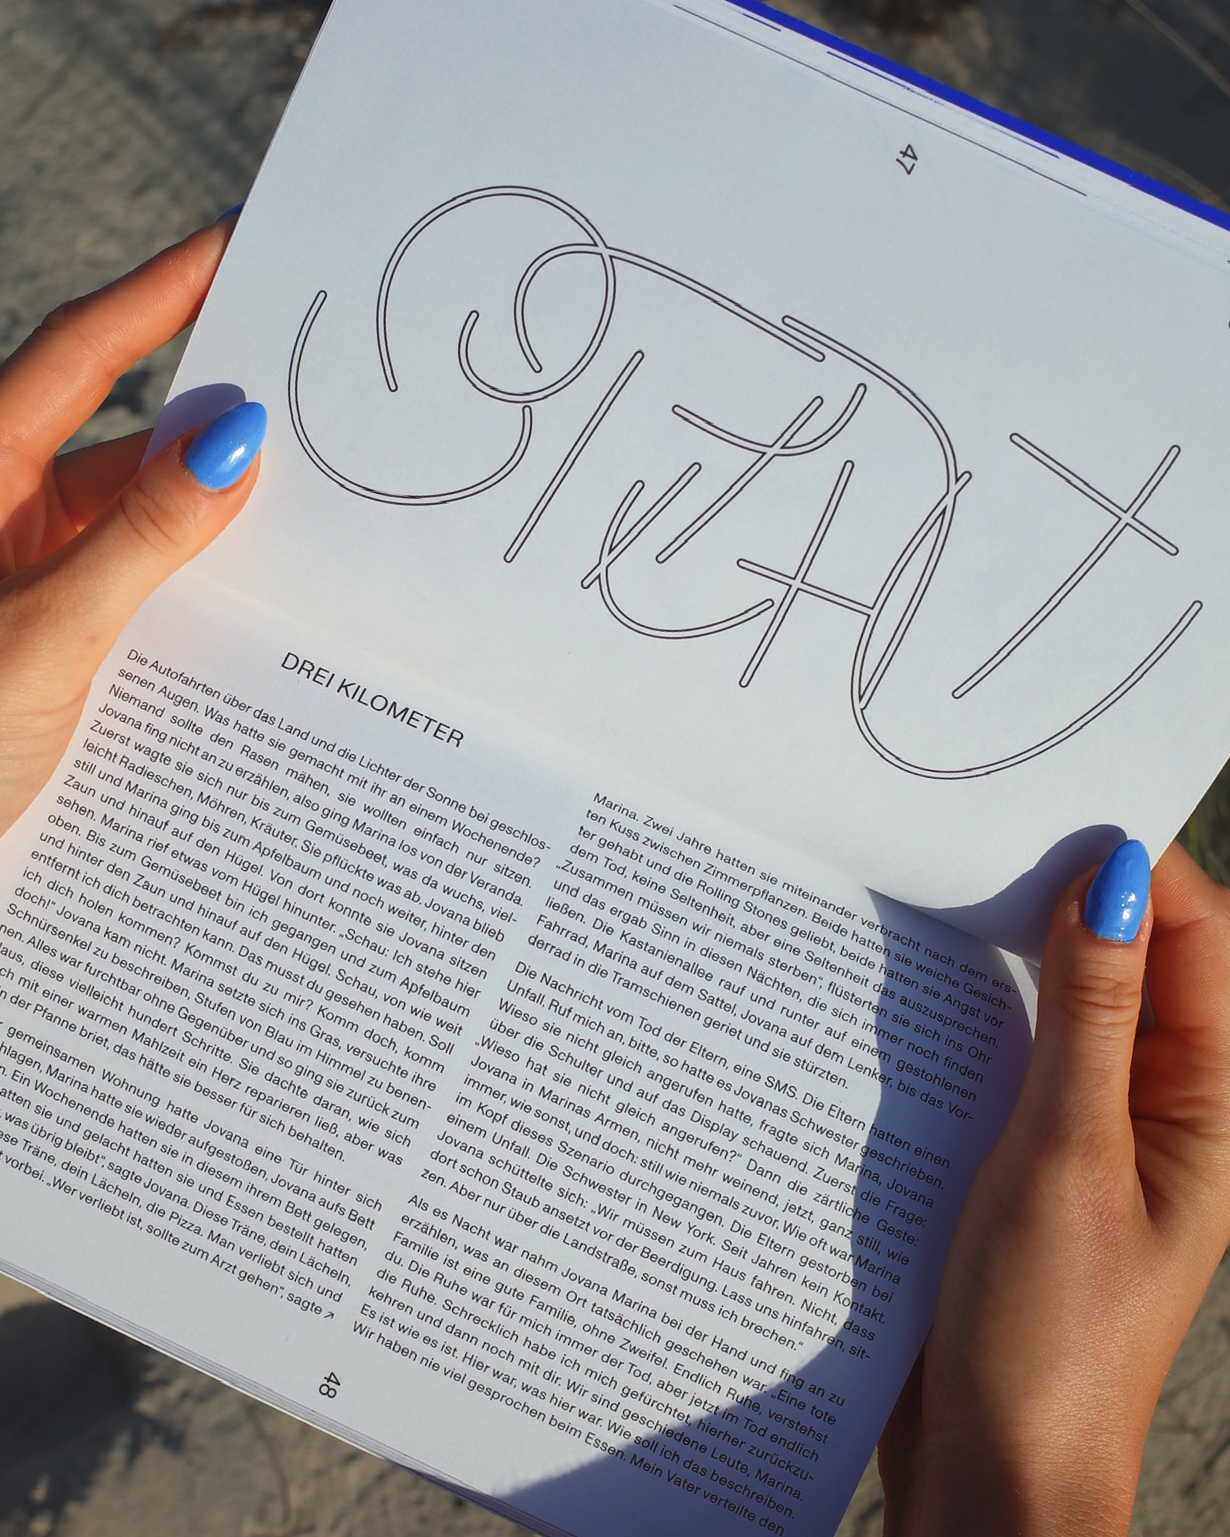 47
DREI KILOMETER
Die Autofahrten über das Land und die Lichter der Sonne bei geschlos-
senen Augen. Was hatte sie gemacht mit ihr an einem Wochenende?
Niemand sollte den Rasen mähen, sie wollten einfach nur sitzen.
Jovana fing nicht an zu erzählen, also ging Marina los von der Veranda.
Zuerst wagte sie sich nur bis zum Gemüsebeet, was da wuchs, viel-
leicht Radieschen, Möhren, Kräuter. Sie pflückte was ab. Jovana blieb
still und Marina ging bis zum Apfelbaum und noch weiter, hinter den
Zaun und hinauf auf den Hügel. Von dort konnte sie Jovana sitzen
sehen. Marina rief etwas vom Hügel hinunter. „Schau: Ich stehe hier
oben. Bis zum Gemüsebeet bin ich gegangen und zum Apfelbaum
und hinter den Zaun und hinauf auf den Hügel. Schau, von wie weit
entfernt ich dich betrachten kann. Das musst du gesehen haben. Soll
ich dich holen kommen? Kommst du zu mir? Komm doch, komm
doch!“ Jovana kam nicht. Marina setzte sich ins Gras, versuchte ihre
Schnürsenkel zu beschreiben, Stufen von Blau im Himmel zu benen-
nen. Alles war furchtbar ohne Gegenüber und so ging sie zurück zum
diese vielleicht hundert Schritte. Sie dachte daran, wie sich
mit einer warmen Mahlzeit ein Herz reparieren ließ, aber was
der Pfanne briet, das hätte sie besser für sich behalten.
gemeinsamen Wohnung hatte Jovana eine Tür hinter sich
Marina hatte sie wieder aufgestoßen, Jovana aufs Bett
Ein Wochenende hatten sie in diesem ihrem Bett gelegen,
sie und gelacht hatten sie und Essen bestellt hatten
was übrig bleibt“, sagte Jovana. Diese Träne, dein Lächeln,
Träne, dein Lächeln, die Pizza. Man verliebt sich und
vorbei. „Wer verliebt ist, sollte zum Arzt gehen“, sagte ↗
Marina. Zwei Jahre hatten sie miteinander verbracht nach dem ers-
ten Kuss zwischen Zimmerpflanzen. Beide hatten sie weiche Gesich-
ter gehabt und die Rolling Stones geliebt, beide hatten sie Angst vor
dem Tod, keine Seltenheit, aber eine Seltenheit das auszusprechen.
„Zusammen müssen wir niemals sterben“, flüsterten sie sich ins Ohr
und das ergab Sinn in diesen Nächten, die sich immer noch finden
ließen. Die Kastanienallee rauf und runter auf einem gestohlenen
Fahrrad, Marina auf dem Sattel, Jovana auf dem Lenker, bis das Vor-
derrad in die Tramschienen geriet und sie stürzten.
Die Nachricht vom Tod der Eltern, eine SMS. Die Eltern hatten einen
Unfall. Ruf mich an, bitte, so hatte es Jovanas Schwester geschrieben.
Wieso sie nicht gleich angerufen hatte, fragte sich Marina, Jovana
über die Schulter und auf das Display schauend. Zuerst die Frage:
„Wieso hat sie nicht gleich angerufen?“ Dann die zärtliche Geste:
Jovana in Marinas Armen, nicht mehr weinend, jetzt, ganz still, wie
immer, wie sonst, und doch: still wie niemals zuvor. Wie oft war Marina
im Kopf dieses Szenario durchgegangen. Die Eltern gestorben bei
einem Unfall. Die Schwester in New York. Seit Jahren kein Kontakt.
Jovana schüttelte sich: „Wir müssen zum Haus fahren. Nicht, dass
dort schon Staub ansetzt vor der Beerdigung. Lass uns hinfahren, sit-
zen. Aber nur über die Landstraße, sonst muss ich brechen.“
Als es Nacht war nahm Jovana Marina bei der Hand und fing an zu
erzählen, was an diesem Ort tatsächlich geschehen war. „Eine tote
Familie ist eine gute Familie, ohne Zweifel. Endlich Ruhe, verstehst
du. Die Ruhe war für mich immer der Tod, aber jetzt im Tod endlich
die Ruhe. Schrecklich habe ich mich gefürchtet, hierher zurückzu-
kehren und dann noch mit dir. Wir sind geschiedene Leute, Marina.
Es ist wie es ist. Hier war, was hier war. Wie soll ich das beschreiben.
Wir haben nie viel gesprochen beim Essen. Mein Vater verteilte den
48